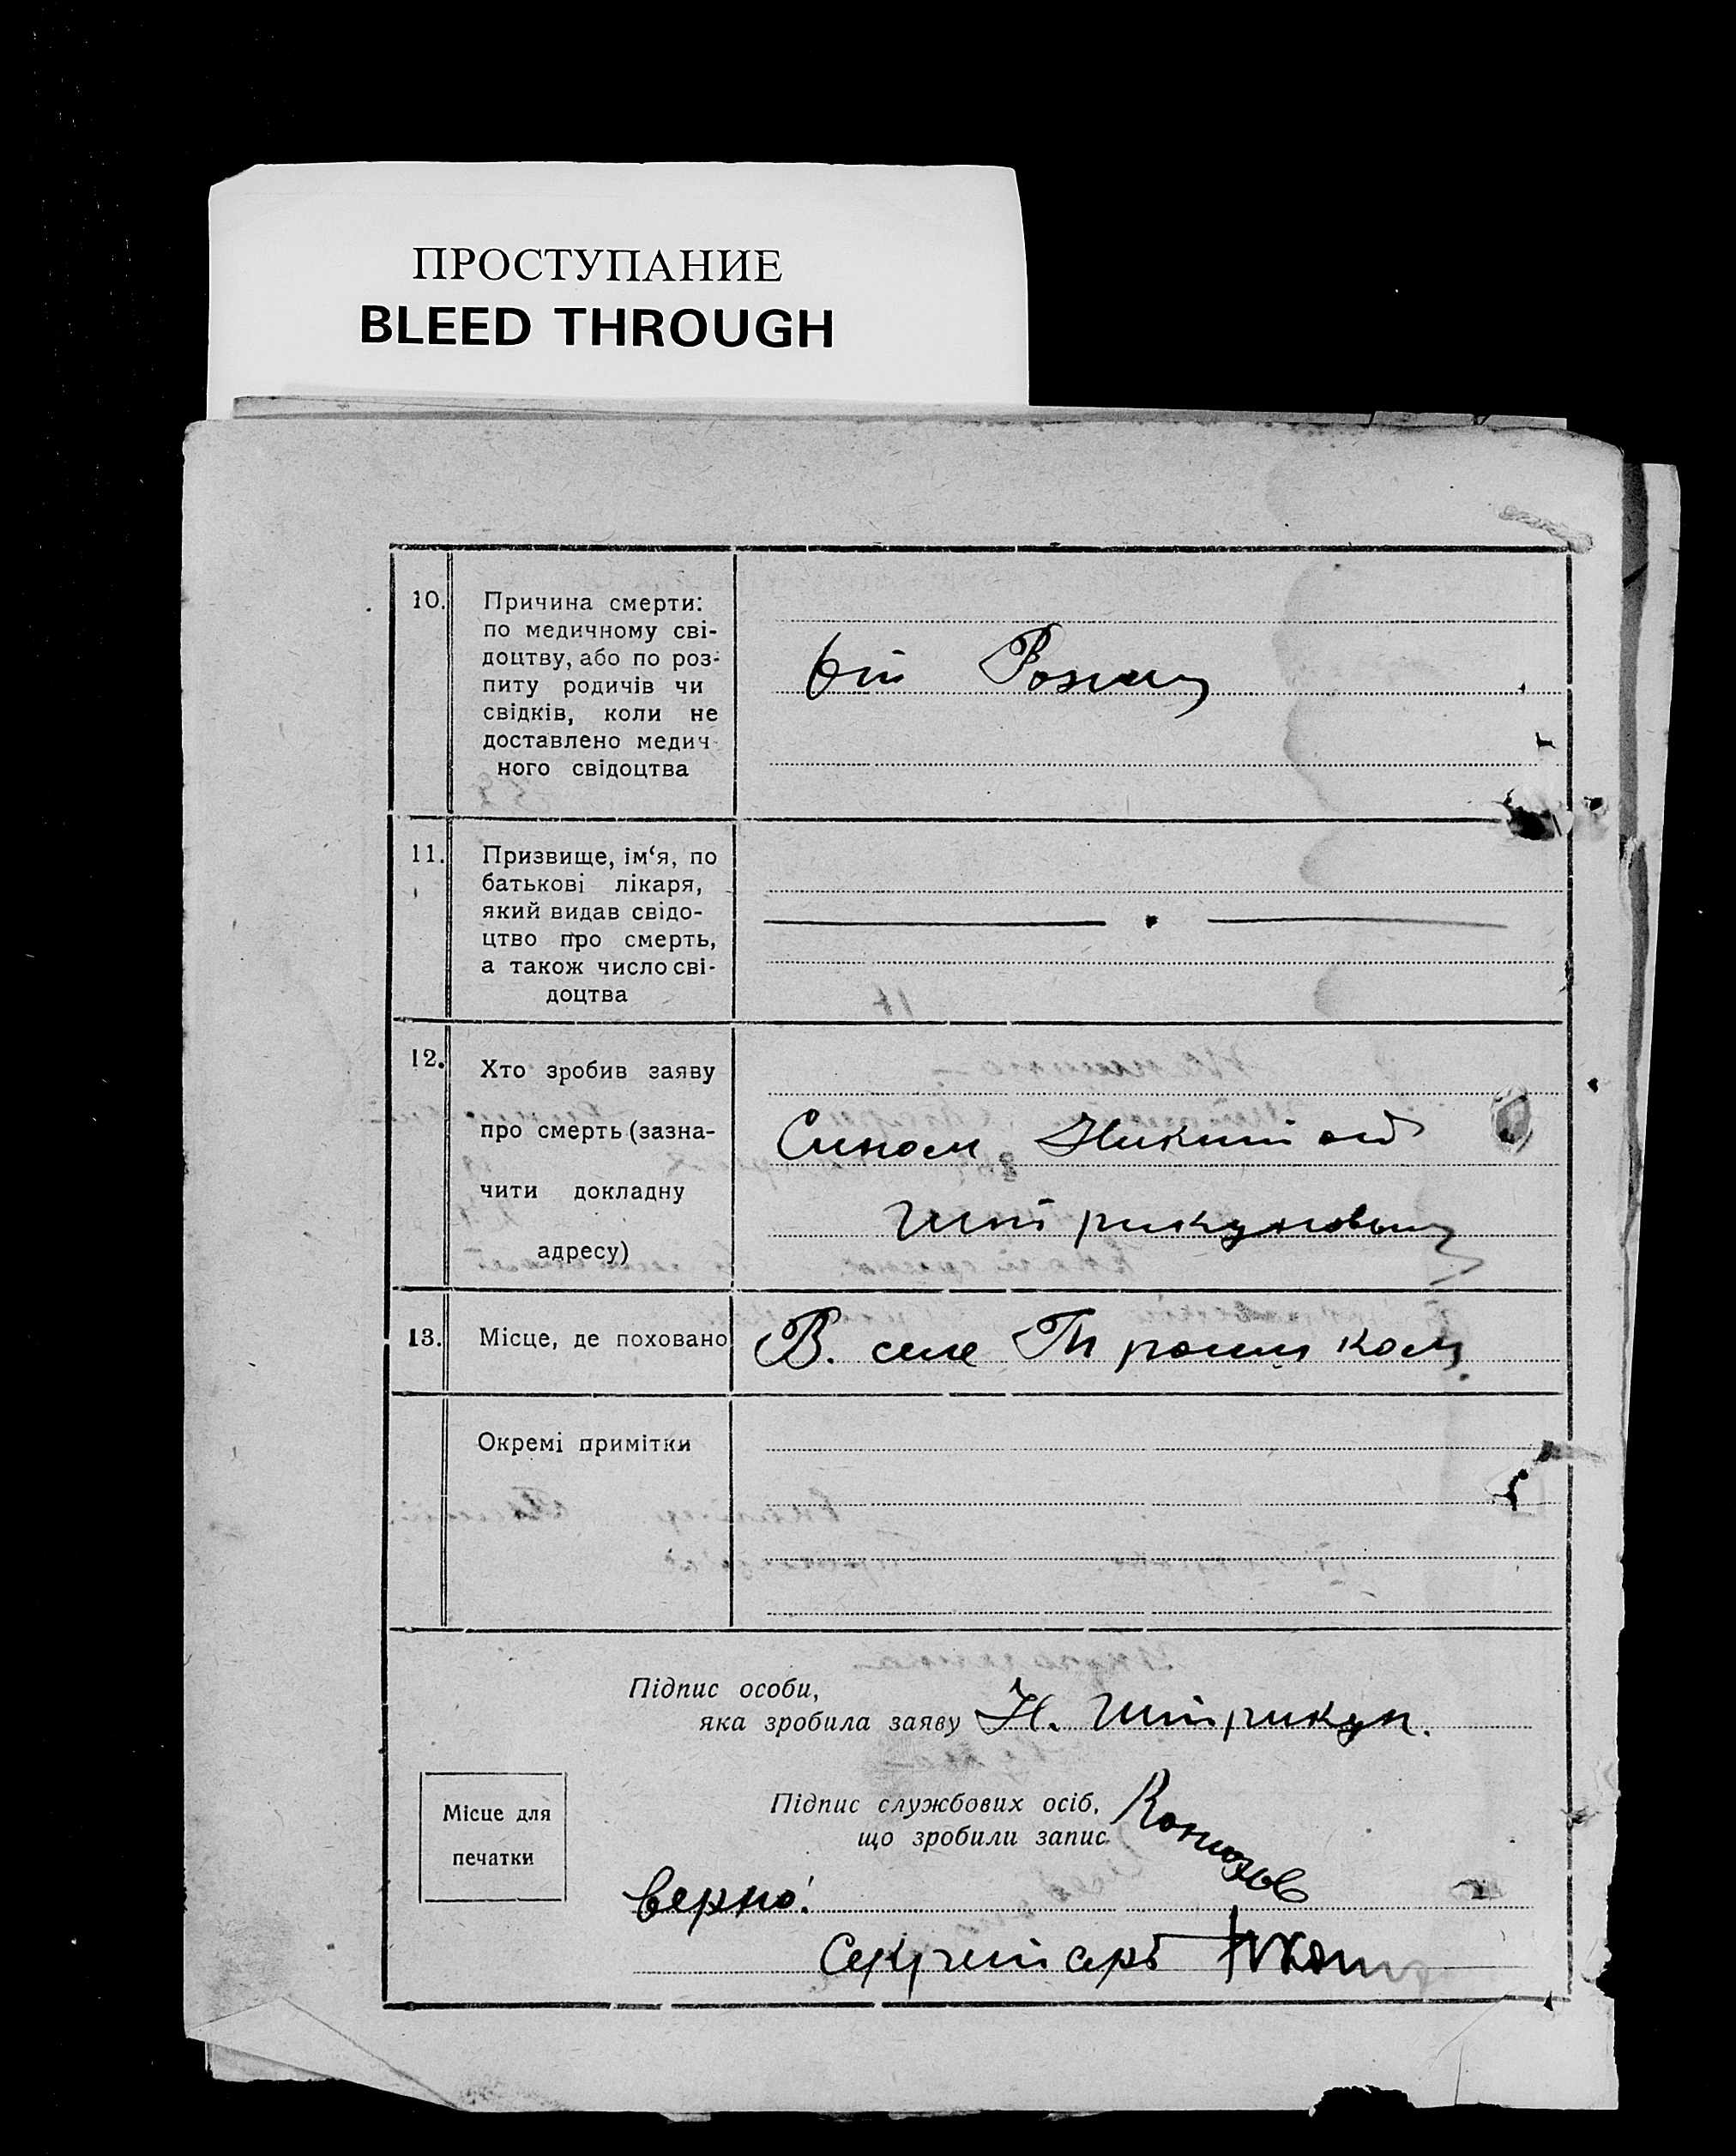 ПРОСТУПАНИЕ
BLEED THROUGH
10. Причина смерти:
по медичному сві-
доцтву, або по роз-
питу родичів чи
свідків, коли не
доставлено медич-
ного свідоцтва
від
11. Призвище, ім‘я, по
батькові лікаря,
який видав свідо-
цтво про смерть,
а також число сві-
доцтва
12. Хто зробив заяву
про смерть (зазна-
чити докладну
адресу)
Сином Никитой
Штрикуновым
13. Місце, де поховано
В. селе
Окремі примітки
Підпис особи,
яка зробила заяву Н. Штрикун.
Підпис службових осіб,
що зробили запис
Місце для
печатки
Верно!
Секретарь